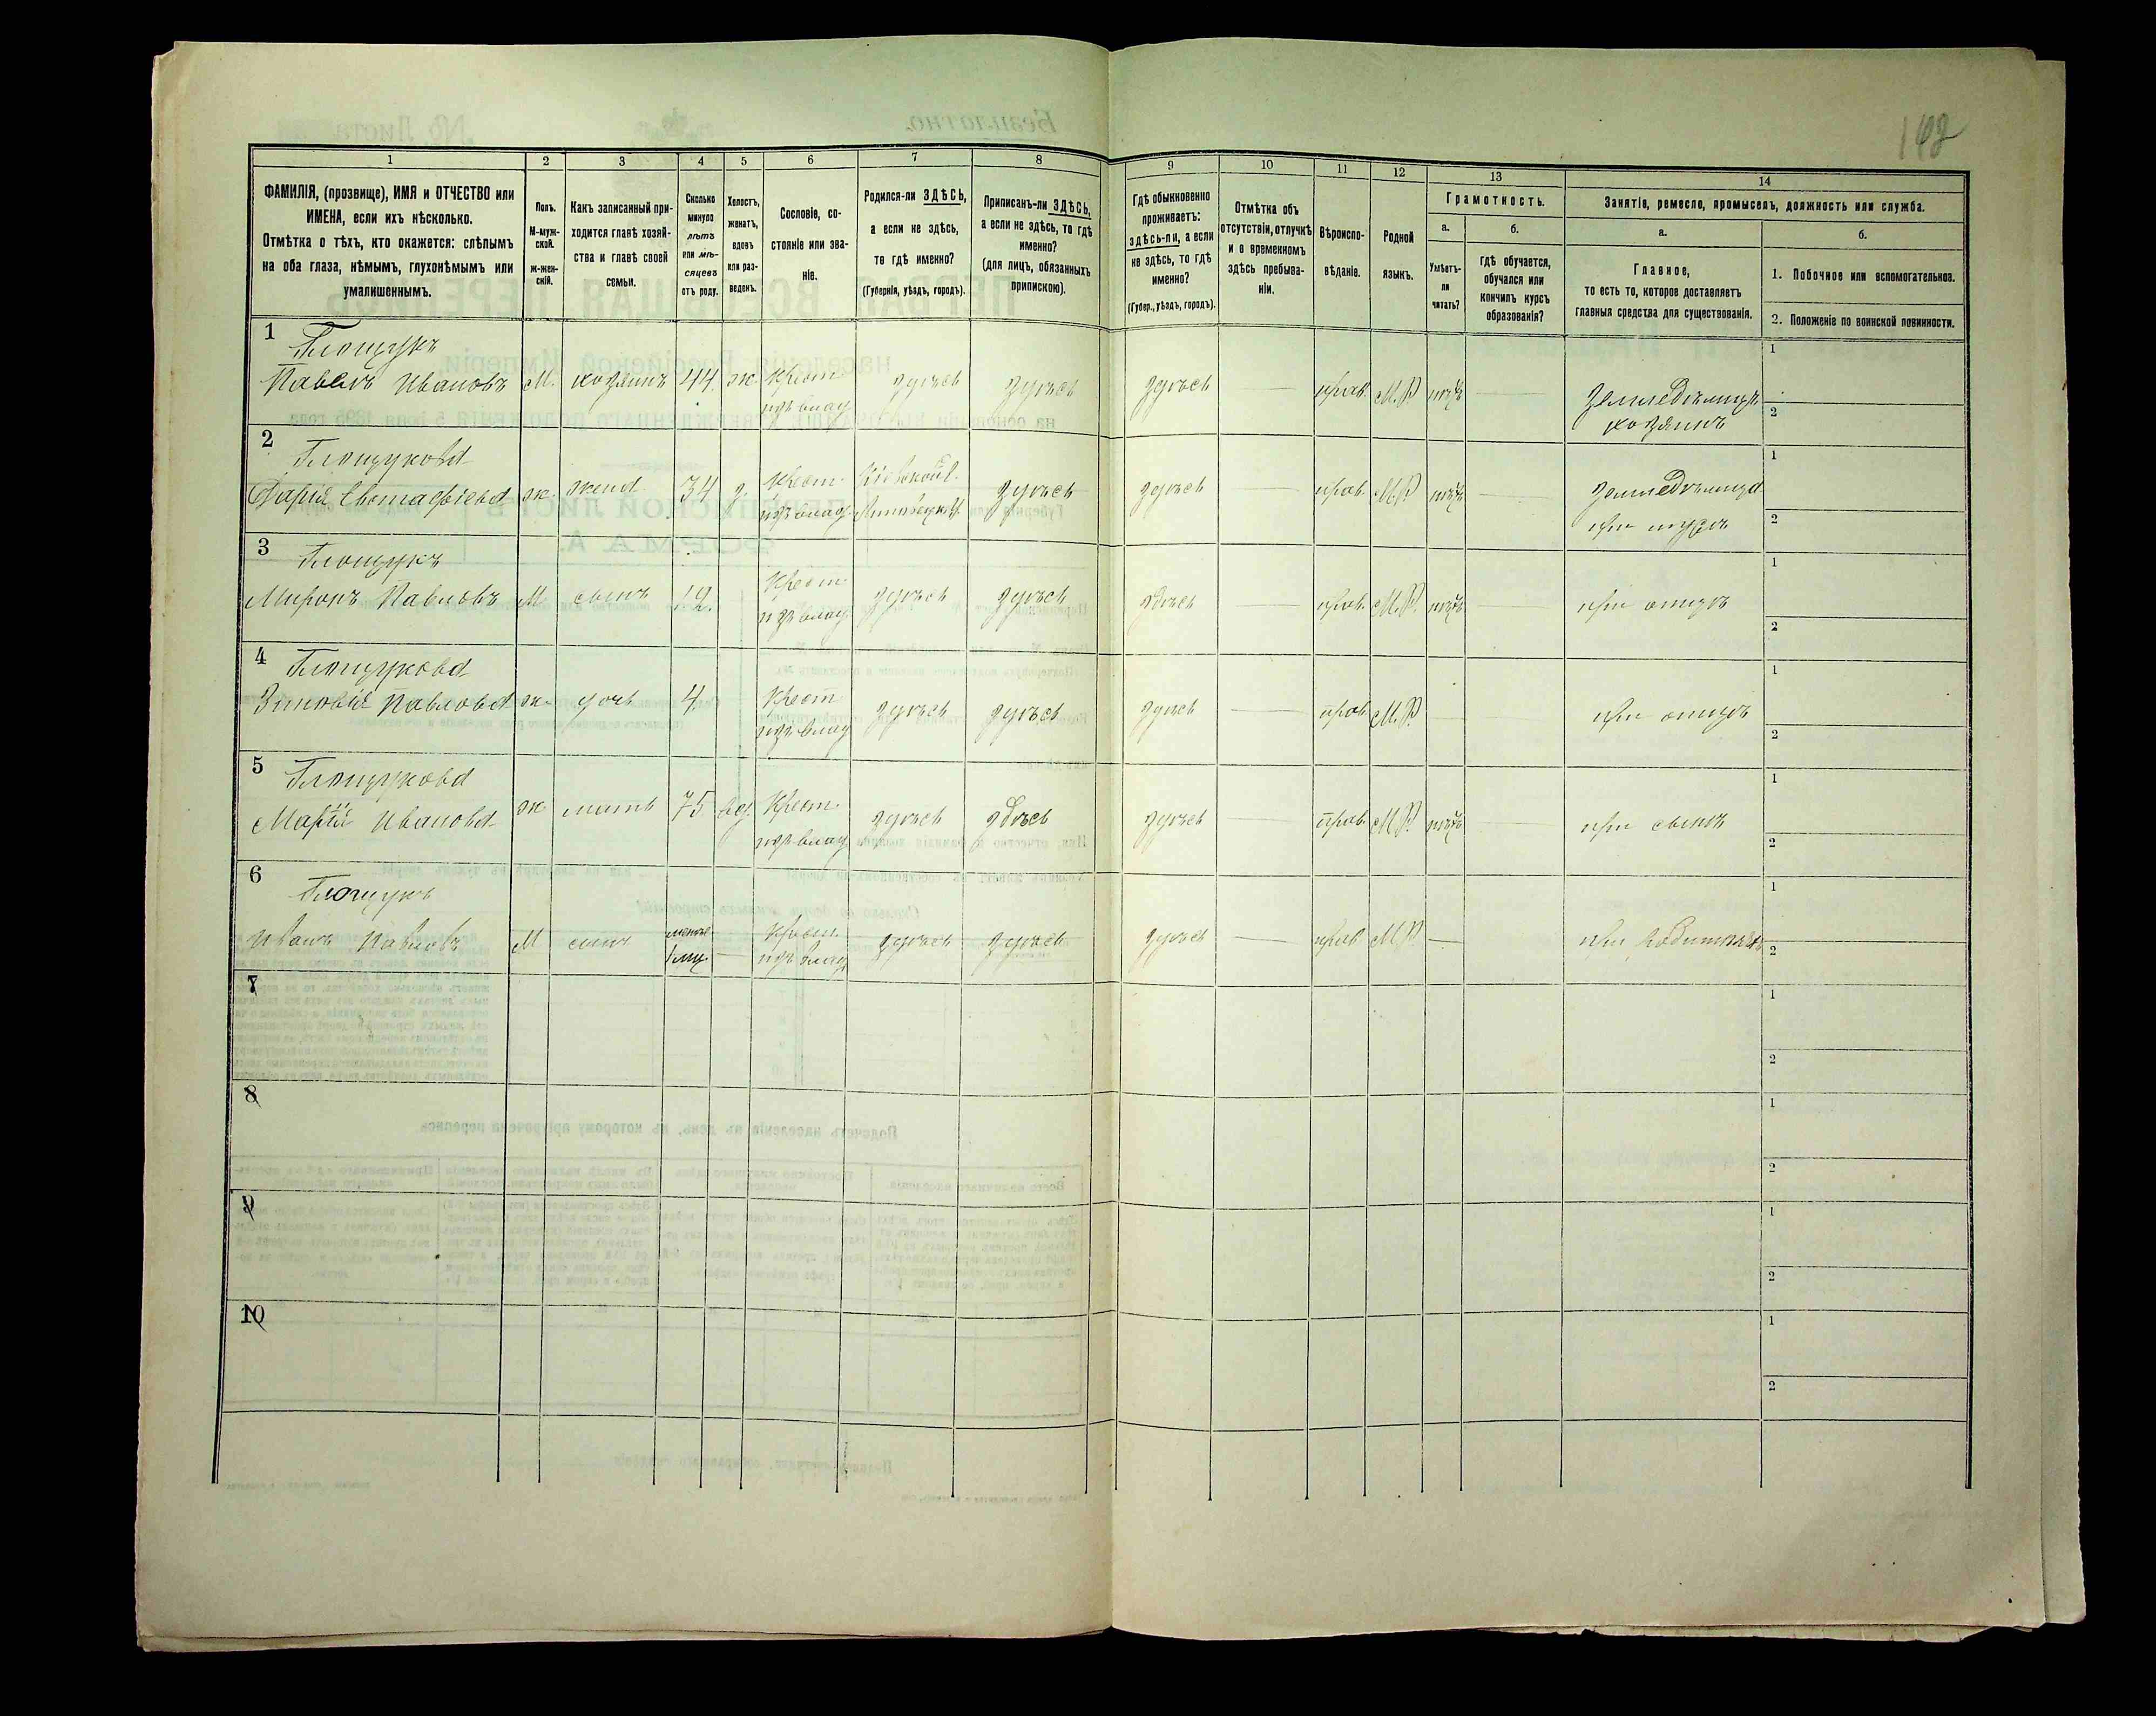 142
1 2 3 4 5 6 7 8 9 10 11 12 13 14
ФАМИЛІЯ, (прозвище), ИМЯ и ОТЧЕСТВО или
ИМЕНА, если ихъ нѣсколько.
Отмѣтка о тѣхъ, кто окажется: слѣпымъ
на оба глаза, нѣмымъ, глухонѣмымъ или
умалишеннымъ.
Полъ.
М-муж-
ской.
ж-жен-
скій.
Какъ записанный при-
ходится главѣ хозяй-
ства и главѣ своей
семьи.
Сколько
минуло
лѣтъ
или мѣ-
сяцевъ
отъ роду.
Холостъ,
женатъ,
вдовъ
или раз-
веденъ.
Сословіе, со-
стояніе или зва-
ніе.
Родился-ли ЗДѢСЬ,
а если не здѣсь,
то гдѣ именно?
(Губернія, уѣздъ, городъ).
Приписанъ-ли ЗДѢСЬ,
а если не здѣсь, то гдѣ
именно?
(для лицъ, обязанныхъ
припискою).
Гдѣ обыкновенно
проживаетъ:
здѣсь-ли, а если
не здѣсь, то гдѣ
именно?
(Губер., уѣздъ, городъ).
Отмѣтка объ
отсутствіи, отлучкѣ
и о временномъ
здѣсь пребыва-
ніи.
Вѣроиспо-
вѣданіе.
Родной
языкъ.
Грамотность.
а.
Умѣетъ-
ли
читать?
б.
гдѣ обучается,
обучался или
кончилъ курсъ
образованія?
Занятіе, ремесло, промыселъ, должность или служба.
а.
Главное,
то есть то, которое доставляетъ
главныя средства для существованія.
б.
1. Побочное или вспомогательное.
2. Положеніе по воинской повинности.
1
Павелъ Ивановъ М. хозяинъ 44 ж. Крест. здѣсь здѣсь здѣсь прав. М.Р. нѣтъ Земледѣлецъ 1
изъ влад. хозяинъ 2
2
Дарія Евстафіева ж. жена 34 з. Крест. Кіевской г. здѣсь здѣсь прав. М.Р. нѣтъ Земледѣлица 1
изъ влад. Липовецк. у. при мужѣ 2
3
Миронъ Павловъ М сынъ 12. Крест. здѣсь здѣсь здѣсь прав. М.Р. нѣтъ при отцѣ 1
изъ влад. 2
4
Зиновія Павлова ж. дочь 4. Крест. здѣсь здѣсь здѣсь прав. М.Р. при отцѣ 1
изъ влад. 2
5
Марія Иванова ж мать 75 вд. Крест. здѣсь здѣсь здѣсь прав. М.Р. нѣтъ при сынѣ 1
изъ влад. 2
6
Иванъ Павловъ М сынъ менѣе Крест. здѣсь здѣсь здѣсь прав. М.Р. при родителяхъ 1
1 мц. изъ влад. 2
7 1
2
8 1
2
9 1
2
10 1
2